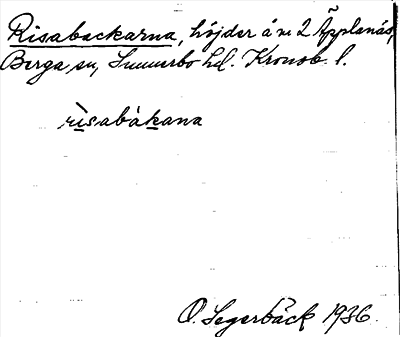 Risabackarna, höjder å nr 2 Äpplanäs,
Berga sn, Sunnerbo hd. Kronob. l.
rìsabàkana
O. Segerbäck 1936.